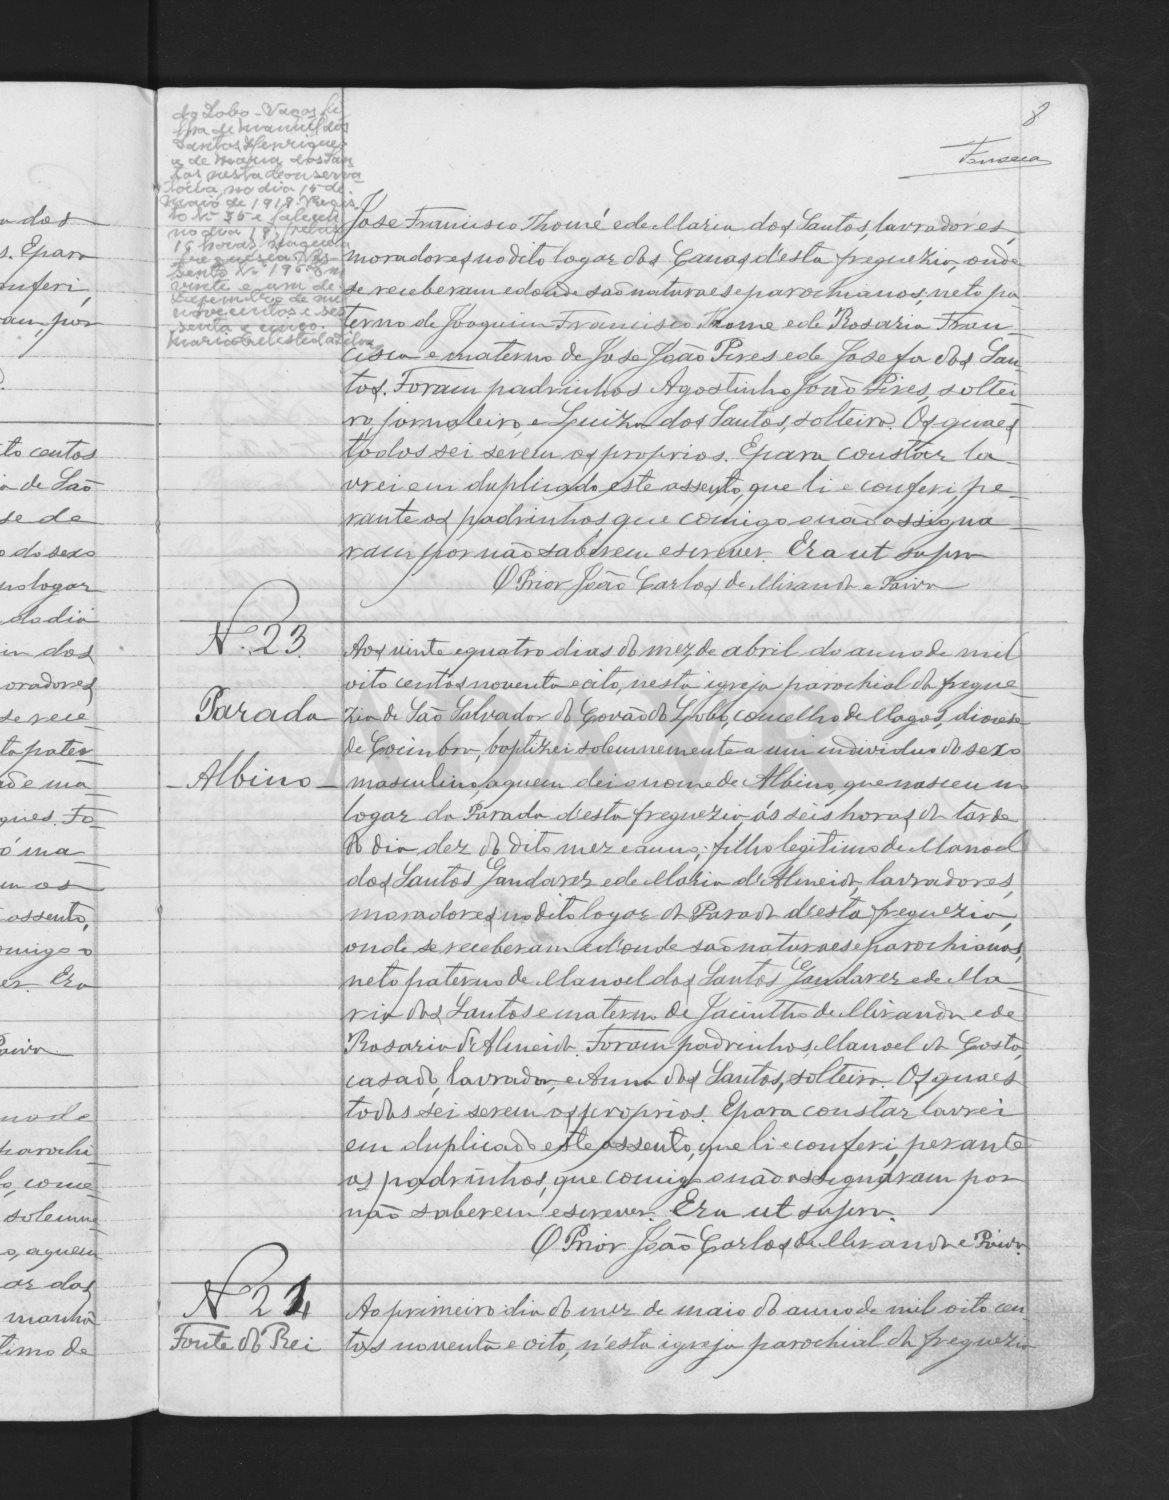 8
Fonseca
do Lobo - Vagos, fi
lha de Manuel dos
Santos Henriques
e de Maria dos San
tos, nesta Conserva
toria, no dia 15 de
Maio de 1918. Regis
to nº 35 e faleceu
no dia 18, pelas
16 horas, naquela
freguesia. As
sento nº 195. Em
vinte e um de
Dezembro de mil
novecentos e ses
senta e cinco.
Maria Celeste da Silva
José Francisco Thomé e de Maria dos Santos, lavradores,
moradores no dito logar das Canas d'esta freguezia, onde
se receberam e donde são naturaes e parochianos; neto pa
terno de Joaquim Francisco Thome e de Rosaria Fran
cisca e materno de Jose João Pires e de Josefa dos San
tos. Foram padrinhos Agostinho João Pires, soltei
ro, jornaleiro, e Luiza dos Santos, solteira. Os quaes
todos sei serem os proprios. E para constar la
vrei em duplicado este assento, que li e conferi, pe
rante os padrinhos que comigo o não assigna
ram por não saberem escrever. Era ut supra
O Prior João Carlos de Miranda e Paiva
Nº 23
Parada
Albino
Aos vinte e quatro dias do mez de abril do anno de mil
oito centos noventa e oito, nesta igreja parochial da fregue
zia de São Salvador do Covão do Lobo, concelho de Vagos, diocese
de Coimbra, baptizei solemnemente a um individuo do sexo
masculino, a quem dei o nome de Albino, que nasceu no
logar da Parada d'esta freguezia ás seis horas da tarde
do dia dez do dito mez e anno; filho legitimo de Manoel
dos Santos Gandarez e de Maria d'Almeida, lavradores,
moradores no dito logar da Parada d'esta freguezia,
onde se receberam e d'onde são naturaes e parochianos,
neto paterno de Manoel dos Santos Gandarez e de Ma
ria dos Santos e materno de Jacintho de Miranda e de
Rosaria d'Almeida. Foram padrinhos, Manoel da Costa,
casado, lavrador, e Anna dos Santos, solteira. Os quaes
todos sei serem os proprios. E para constar lavrei
em duplicado este assento, que li e conferi, perante
os padrinhos, que comigo o não assignaram por
não saberem escrever. Era ut supra.
O Prior João Carlos de Miranda e Paiva
Nº 24
Fonte do Rei
Ao primeiro dia do mez de maio do anno de mil oito cen
tos noventa e oito, n'esta igreja parochial da freguezia